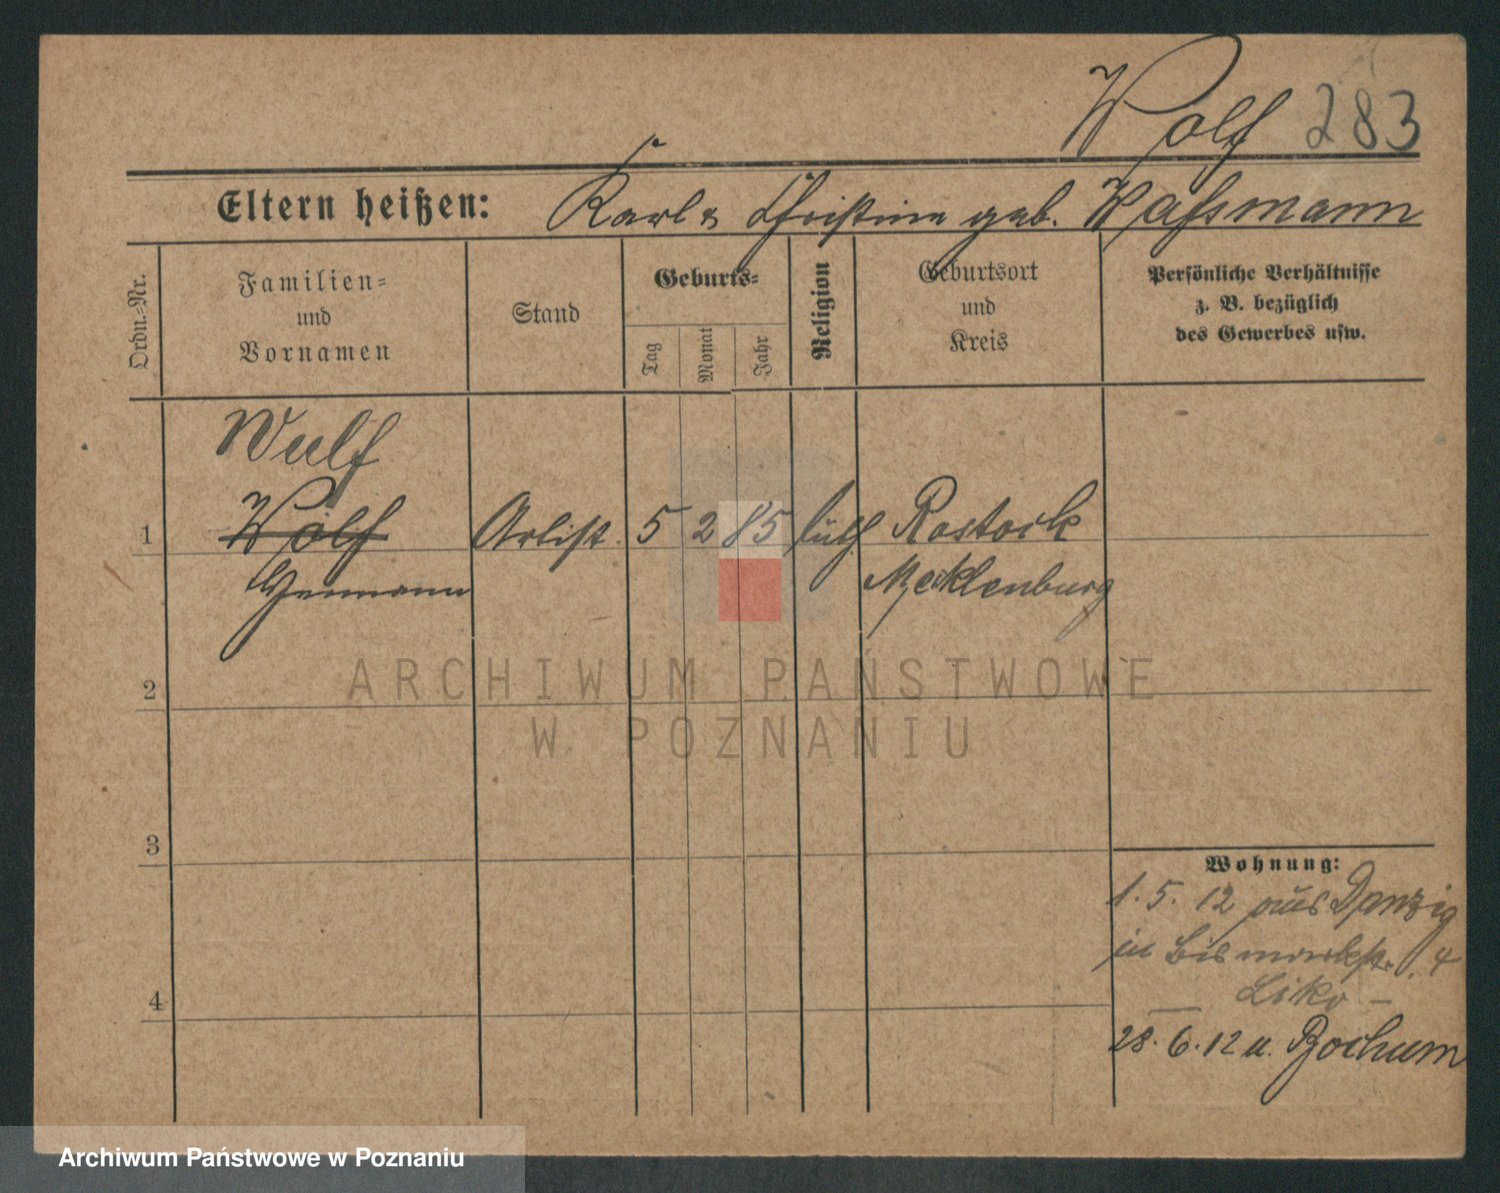 Wolf 283
Eltern heißen: Karl & Christine geb. Waßmann
Ordn.-Nr.
Familien=
und
Vornamen
Stand
Geburts=
Tag
Monat
Jahr
Religion
Geburtsort
und
Kreis
Persönliche Verhältnisse
z. B. bezüglich
des Gewerbes usw.
Wulf
1 Wolf Artist 5 2 85 luth Rostock
Hermann Mecklenburg
2
3
4
Wohnung:
1. 5. 12 aus Danzig
in Bismarckstr. 4
28. 6. 12 n. Bochum
ARCHIWUM PAŃSTWOWE
W POZNANIU
Archiwum Państwowe w Poznaniu